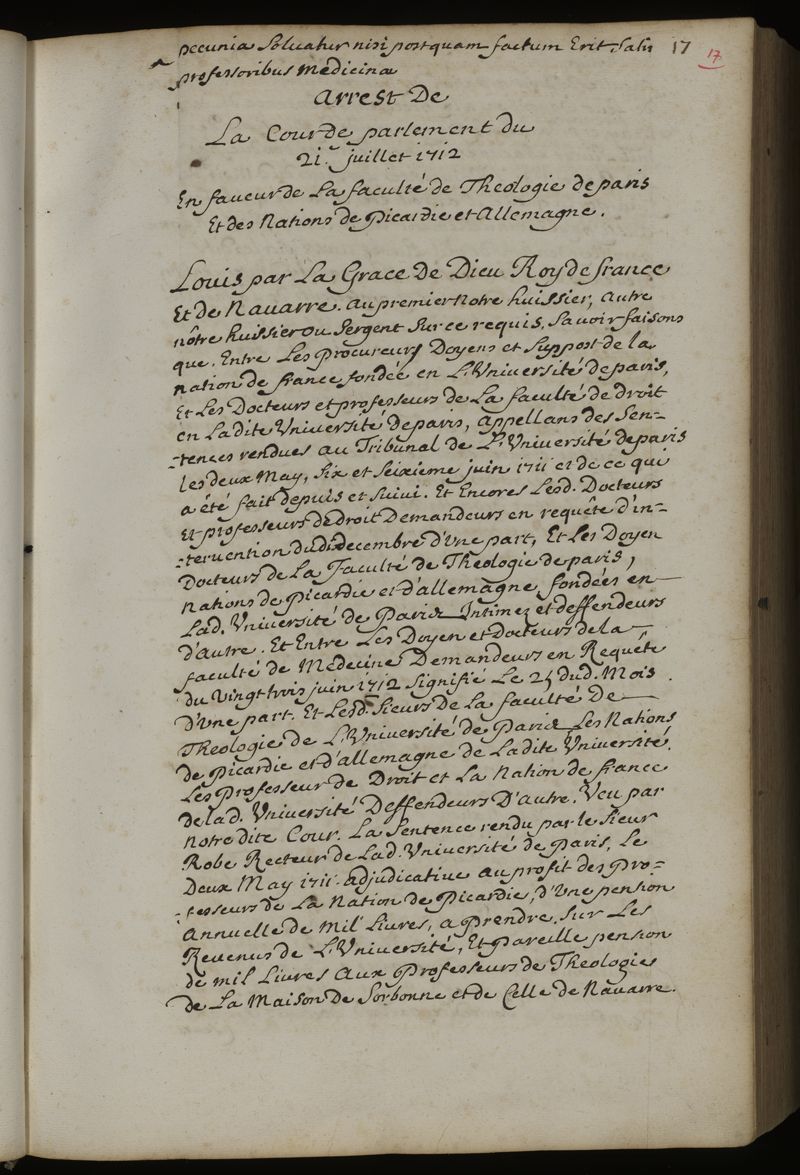 pecunia Solvatur nisi postquam factum Erit Satis 17 17
professoribus medicinæ
Arrest De
La Cour de parlement du
21. juillet 1712
En faveur de La faculté de Theologie de paris
Et des Nations de Picardie et Allemagne.
Louis par La Grace De Dieu Roy de france
Et de Navarre. au premier Notre huissier, autre
nôtre huissier ou Sergent Sur ce requis, Savoir faisons
que. Entre Les Procureurs Doyens et Suppost de la
nation de france fondée en L'Université de paris,
Et Les Docteurs et professeurs de La faculté de droit
en Ladite Université de paris, appellans des Sen-
-tences rendues au Tribunal de L'Université de paris
les deux May, Six et Seixieme juin 1711 et de ce qui
a été fait depuis et Suivi. Et Encores Lesd. Docteurs
Et professeurs de Droit Demandeurs en requête d'in-
-tervention du decembre d'Vne part, Et Les Doyen
Docteurs de La Faculté de Theologie de paris,
Nations de Picardie et d'allemagne fondées en
Lad. Université de Paris Intimez et deffendeurs
d'autre. Et Entre Les Doyen et Docteurs de la
faculté de Medecine Demandeurs en Requête
du Vingt trois juin 1712 Signifié Le 25 dud. Mois.
D'Vne part. Et Lesd. Sieurs de La faculté De
Theologie de L'Université de Paris Les Nations
de Picardie et d'allemagne de Ladite Université.
Les Professeur de Droit et La Nation de france
de lad. Université Deffendeurs D'autre. Veu par
Notre dite Cour. La Sentence rendu par le Sieur
Robe Recteur de Lad. Université de paris, Le
Deux May 1711. adjudicative au profit des Pro-
-fesseurs de La Nation de Picardie, d'Vne pension
Annuelle de Mil Livres, a prendre. Sur Les
Revenus de L'Université, Et pareille pension
de mil Livres Aux Professeurs de Theologie
de La Maison de Sorbonne et de Celle de Navarre.